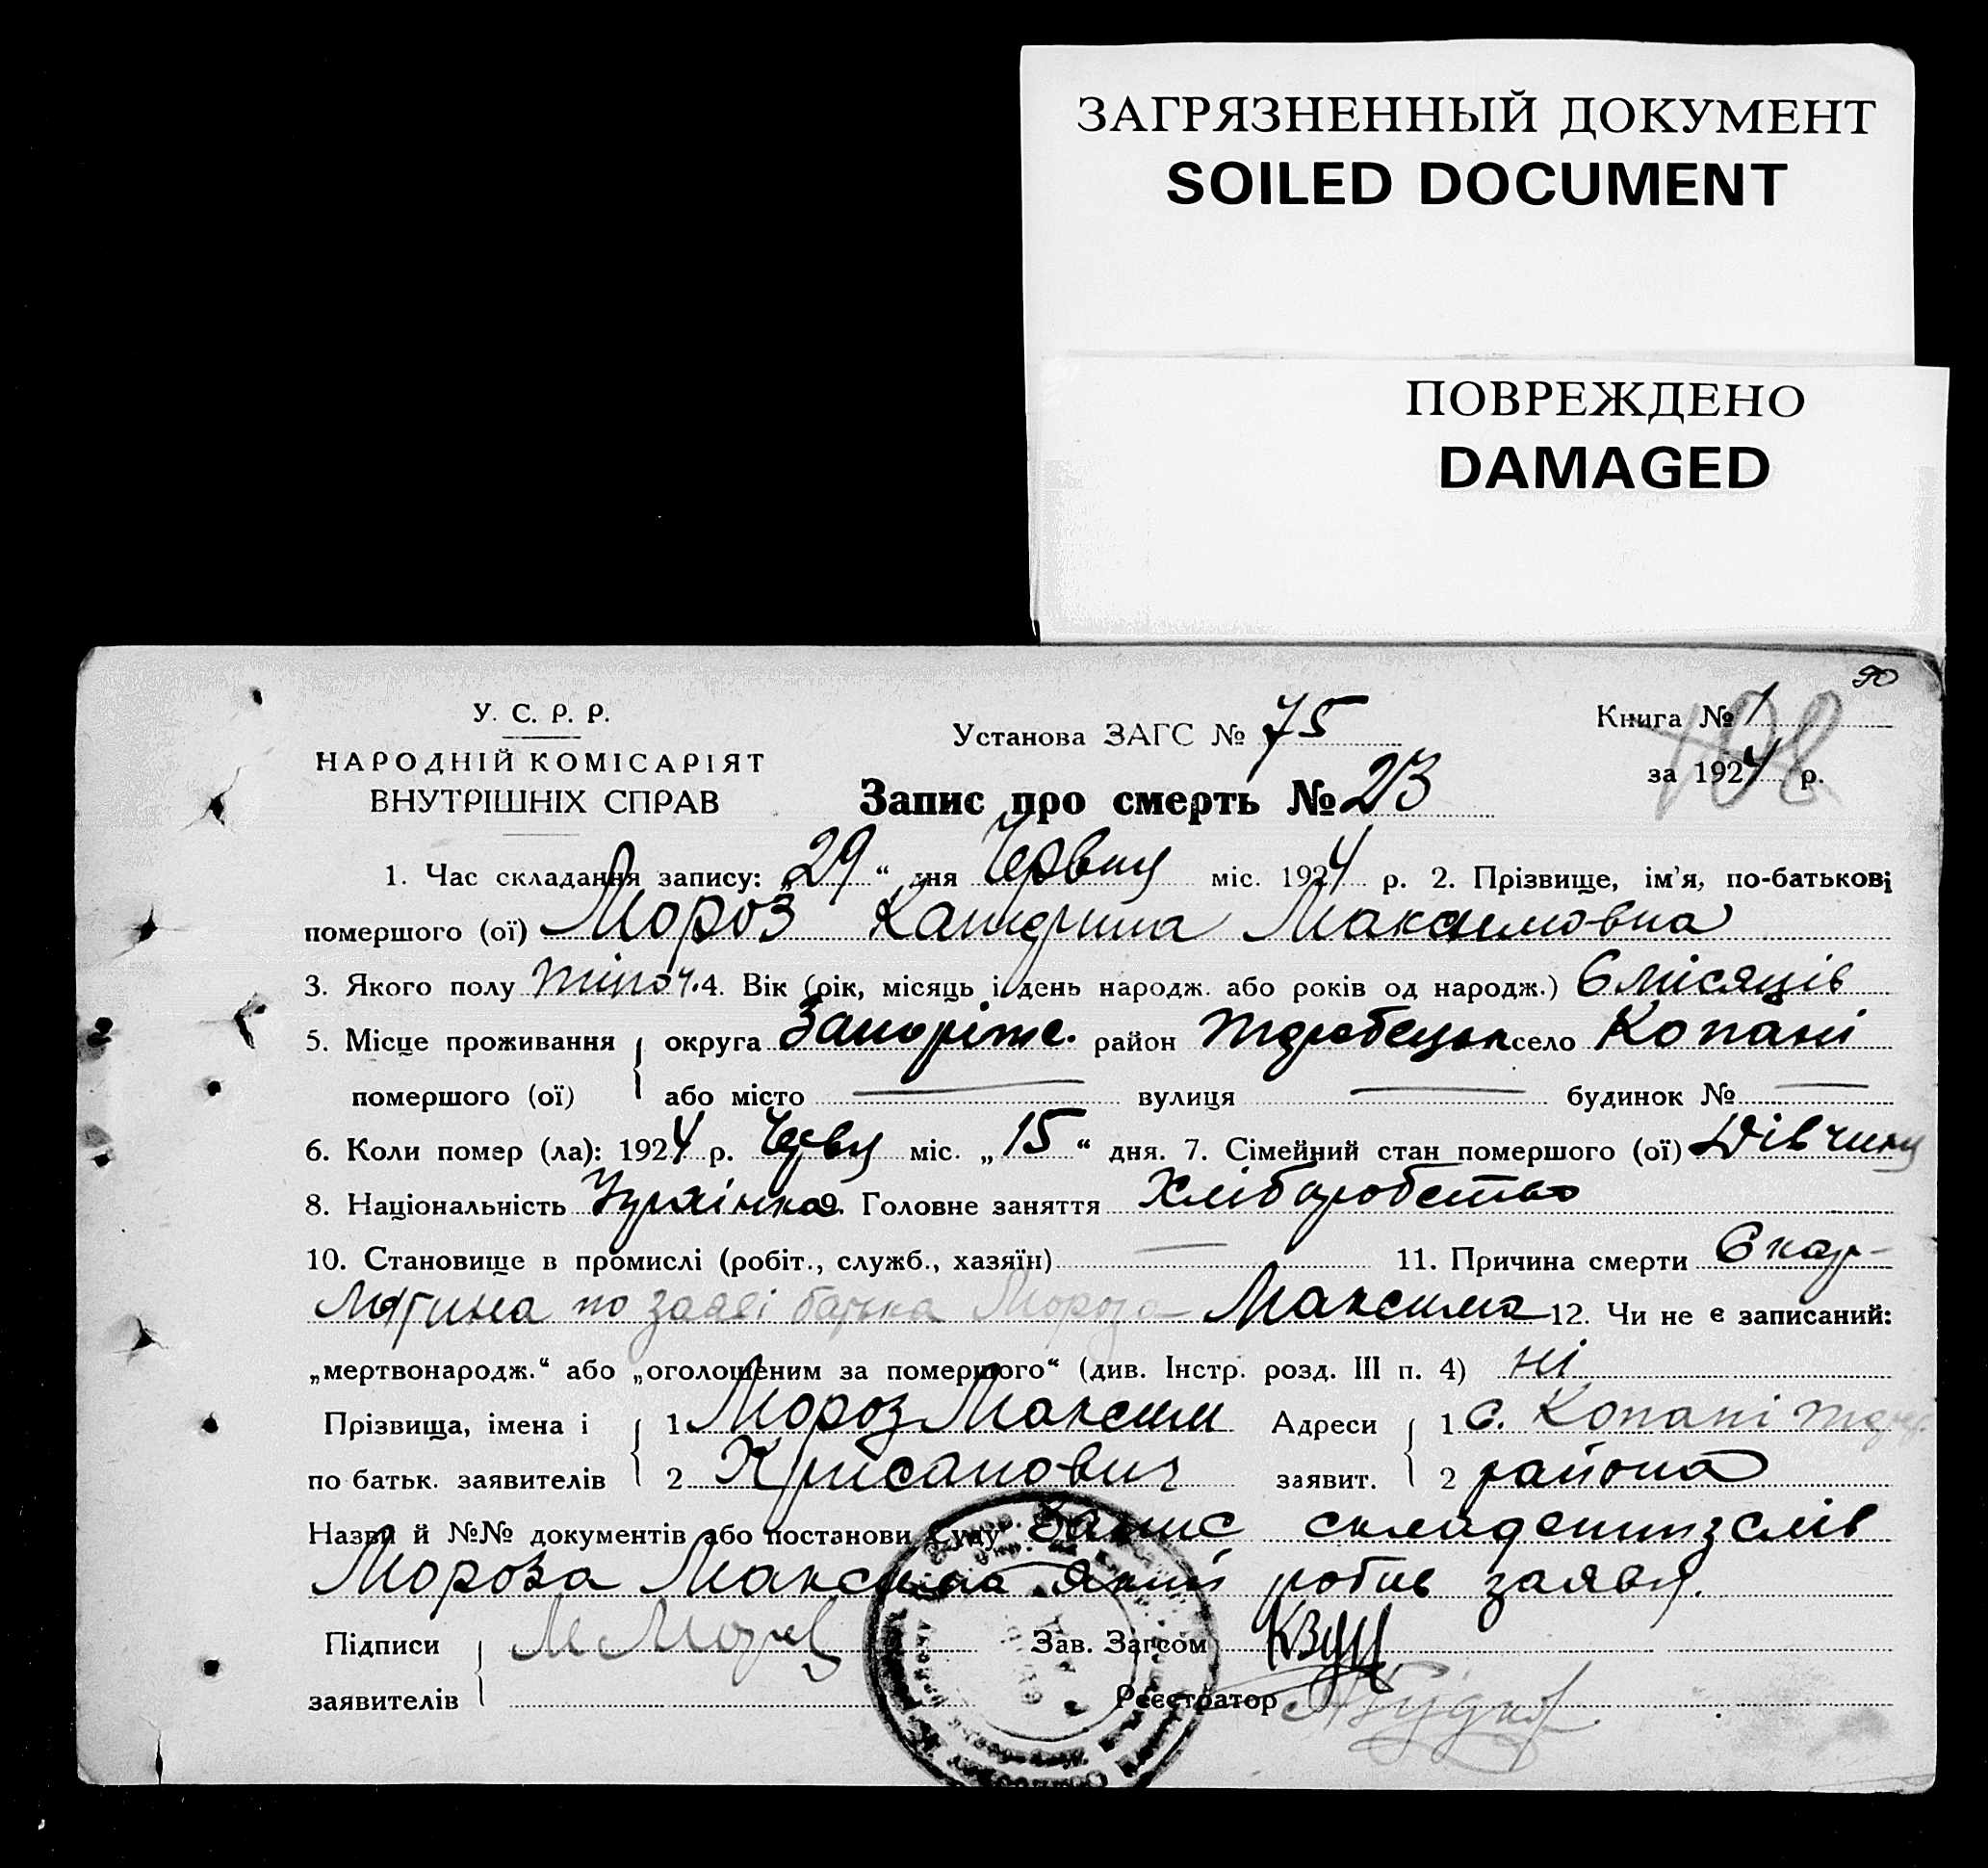 ЗАГРЯЗНЕННЫЙ ДОКУМЕНТ
SOILED DOCUMENT
ПОВРЕЖДЕНО
DAMAGED
90
У. С. Р. Р.
НАРОДНІЙ КОМІСАРІЯТ
ВНУТРІШНІХ СПРАВ
Установа ЗАГС № 75
Запис про смерть № 23
Книга № 1
за 1924 р.
108
1. Час складання запису: „29“ дня Червня міс. 1924 р. 2. Прізвище, ім'я, по-батькові
помершого (ої) Мороз Катерина Максимовна
3. Якого полу жіноч. 4. Вік (рік, місяць і день народж. або років од народж.) 6 місяців
5. Місце проживання округа Запоріж. район село Копані
помершого (ої) або місто — вулиця — будинок № —
6. Коли помер (ла): 1924 р. Червня міс. „15“ дня. 7. Сімейний стан помершого (ої) Дівчина
8. Національність 9. Головне заняття Хліборобство
10. Становище в промислі (робіт., служб., хазяїн) — 11. Причина смерти Скар-
латина по заяві батька Мороза Максима 12. Чи не є записаний:
„мертвонародж.“ або „оголошеним за помершого“ (див. Інстр. розд. III п. 4) ні
Прізвища, імена і 1 Мороз Максим Адреси 1 с. Копані
по батьк. заявителів 2 Крисанович заявит. 2 района
Назви й №№ документів або постанови Суду Запис складений зі слів
Мороза Максима який робив заяву.
Підписи М Мороз Зав. Загсом
заявителів Реєстратор